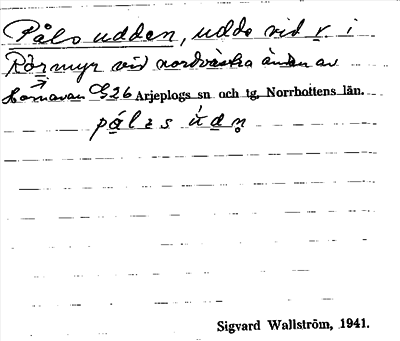 Påls udden, udde vid v. i
Rörmyr vid nordvästra ändan av
Hornavan G26 Arjeplogs sn och tg, Norrbottens län.
Sigvard Wallström, 1941.